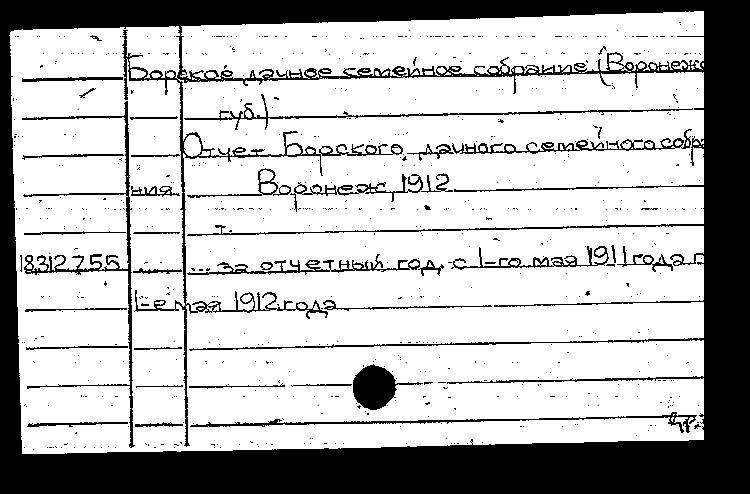 Борское дачное семейное собрание (Воронежс
губ.)
Отчет Борского дачного семейного собра
ния Воронеж, 1912
т.
18312755 ... за отчетный год, с 1-го мая 1911 года п
1-е мая 1912 года